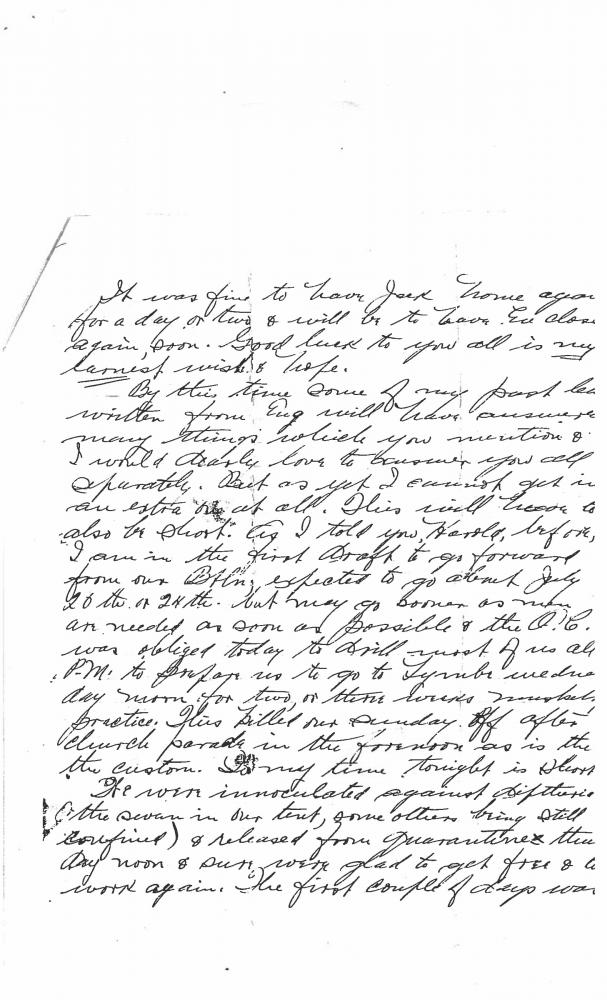 It was fine to have Jack home again
for a day or two & will be to have Ev close
again, soon. Good luck to you all is my
earnest wish & hope.
By this time some of my past le
written from Eng will have answere
many things which you mention &
I would dearly love to answer you all
separately. But as yet I cannot get in
an extra one at all. This will have to
also be short. As I told you, Harold, before,
I am in the first Draft to go forward
from our Btln, expected to go about July
20th. or 24th. but may go sooner as men
are needed as soon as possible & the O.C.
was obliged today to Drill most of us all
P.M. to prepare us to go to Lymbe wednes
day morn for two or three weeks musket
practice. This killed our Sunday off after
church parade in the forenoon as is the
the custom. So my time tonight is short
We were innoculated against diptheria
(the seven in our tent, some others being still
confined) & released from Quarantine thu
day noon & sure were glad to get free &
work again. The first couple of days was